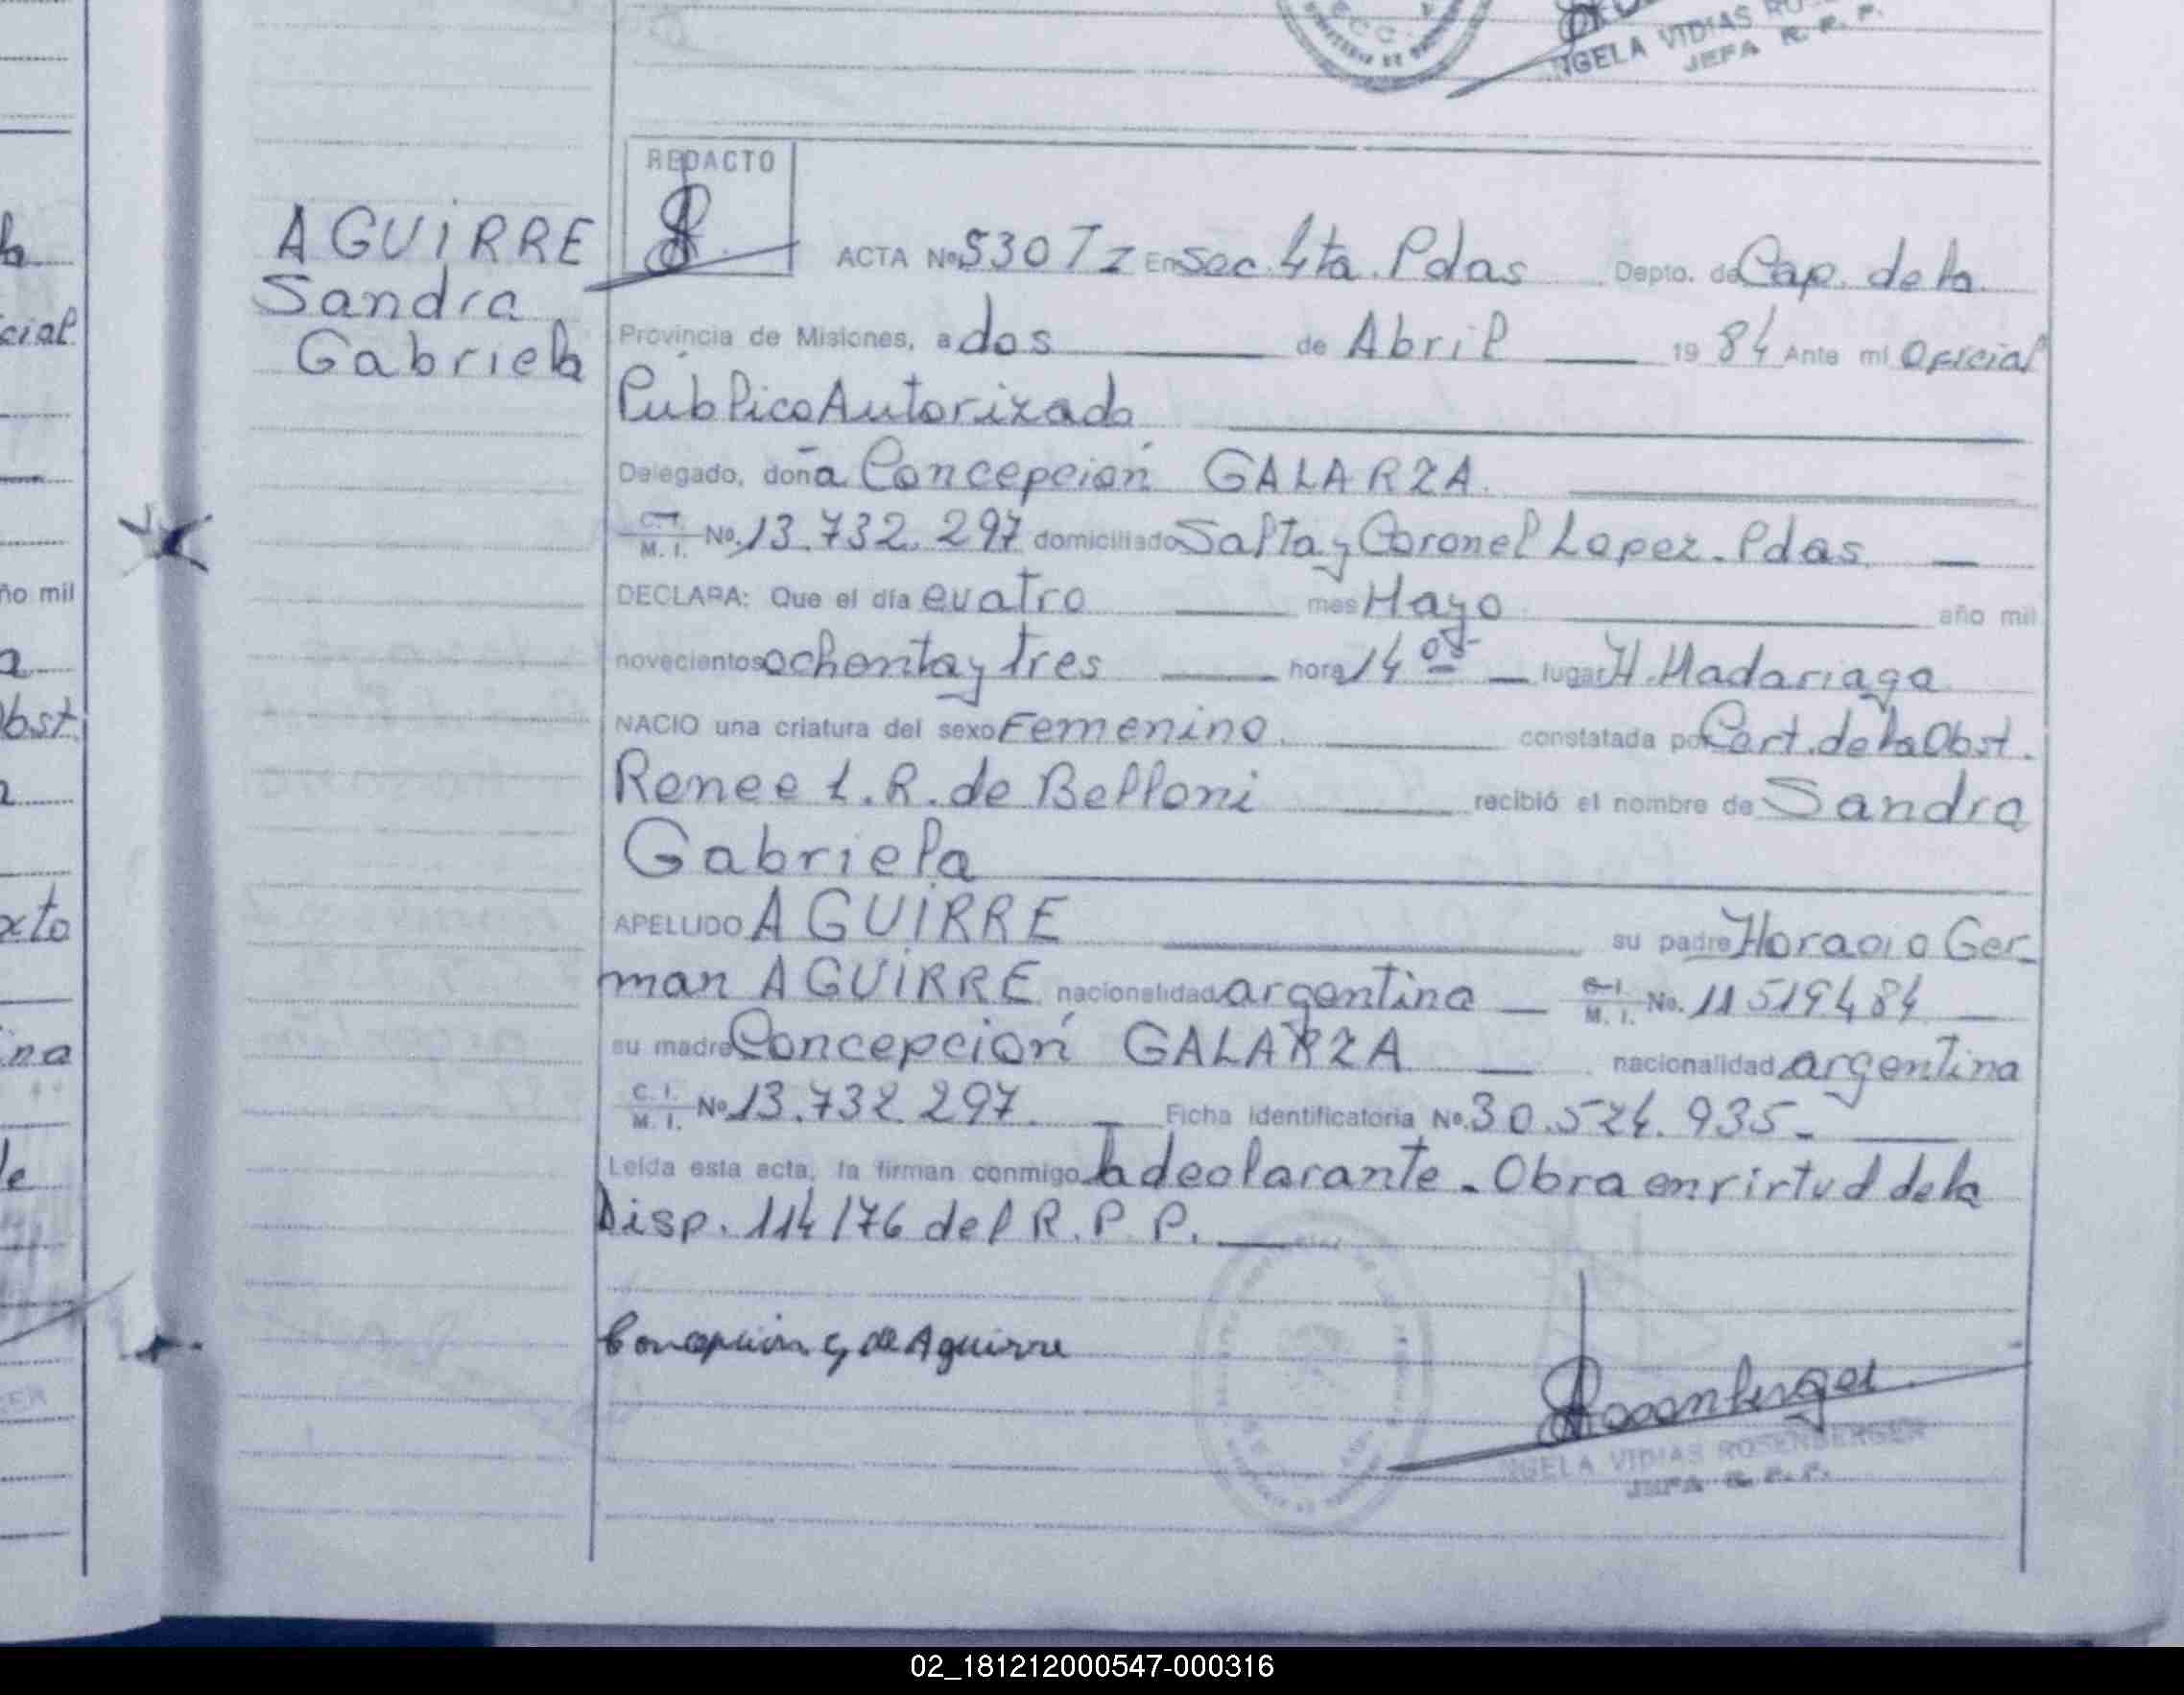 GELA VIDIAS RO
JEFA R. P. P.
REDACTO
AGUIRRE
Sandra
Gabriela
ACTA Nº 530 Tz En Sec. 4ta. Pdas Depto. de Cap. de la
Provincia de Misiones, a dos de Abril 19 84 Ante mi Oficial
Público Autorizado
Delegado, doña Concepción GALARZA.
C.I. M. I. Nº. 13.732.297 domiciliado Salta y Coronel Lopez. Pdas
DECLARA: Que el día cuatro mes Mayo año mil
novecientos ochenta y tres hora 14 05 lugar H. Madariaga
NACIO una criatura del sexo Femenino. constatada por Cert. de la Obst.
Renee L. R. de Belloni recibió el nombre de Sandra
Gabriela
APELLIDO AGUIRRE su padre Horacio Ger-
man AGUIRRE nacionalidad argentina C.I. M. I. No. 11519484
su madre Concepción GALARZA nacionalidad argentina
C. I. M. I. Nº 13.732.297. Ficha Identificatoria Nº. 30.524.935-
Leída esta acta, la firman conmigo la declarante. Obra en virtud de la
Disp. 114/76 del R. P. P.
Concepcion G de Aguirre
Rosenberger
NGELA VIDIAS ROSENBERGER
JEFA R. P. P.
02_181212000547-000316